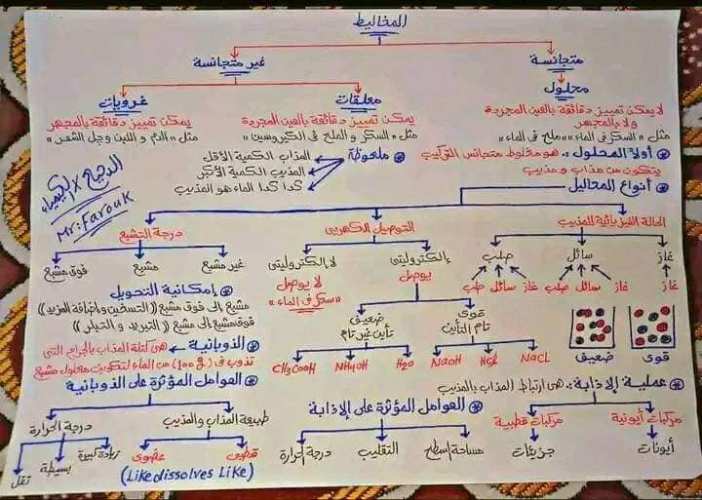 المخاليط
متجانسة
غير متجانسة
محلول
معلقات
غرويات
لا يمكن تمييز دقائقة بالعين المجردة
ولا بالمجهر
مثل " السكر فى الماء " " ملح فى الماء "
يمكن تمييز دقائقة بالعين المجردة
مثل " السكر و الملح فى الكيروسين "
يمكن تمييز دقائقة بالمجهر
مثل " الدم و اللبن وجل الشعر "
أولاً المحلول :- هو مخلوط متجانس التركيب
يتكون من مذاب و مذيب
ملحوظة
المذاب الكمية الأقل
المذيب الكمية الأكبر
كدا كدا الماء هو المذيب
الدحيح X الكيمياء
Mr: Farouk
أنواع المحاليل
الحالة الفيزيائية للمذيب
التوصيل الكهربى
درجة التشبع
غاز
سائل
صلب
غاز
غاز سائل صلب
غاز سائل صلب
إلكتروليتى
يوصل
لا إلكتروليتى
لا يوصل
" سكر فى الماء "
غير مشبع
مشبع
فوق مشبع
إمكانية التحويل
مشبع إلى فوق مشبع (( التسخين وإضافة المزيد ))
فوق مشبع إلى مشبع (( التبريد و التبلر ))
قوى
تام التأين
ضعيف
تأين غير تام
NaCl
HCl
NaOH
H2O
NH4OH
CH3COOH
قوى
ضعيف
الذوبانية
هى كتلة المذاب بالجرام التى
تذوب فى (100 g) من الماء لتكوين محلول مشبع
عملية الإذابة :- هى ارتباط المذاب بالمذيب
مركبات أيونية
مركبات قطبية
أيونات
جزيئات
العوامل المؤثرة على الإذابة
مساحة السطح
التقليب
درجة الحرارة
العوامل المؤثرة على الذوبانية
طبيعة المذاب والمذيب
درجة الحرارة
قطبى
عضوى
(Like dissolves Like)
زيادة كبيرة
بسيطة
تقل